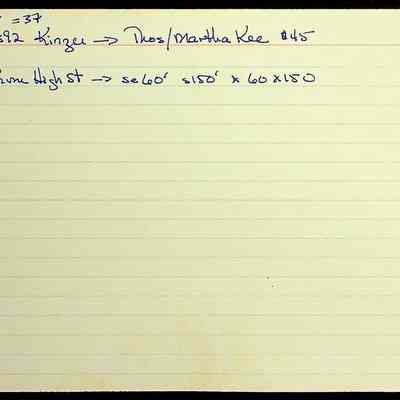 =37
892 Kinzee → Thos/Martha Kee $45
High St → se 60' s150' x 60 x 150